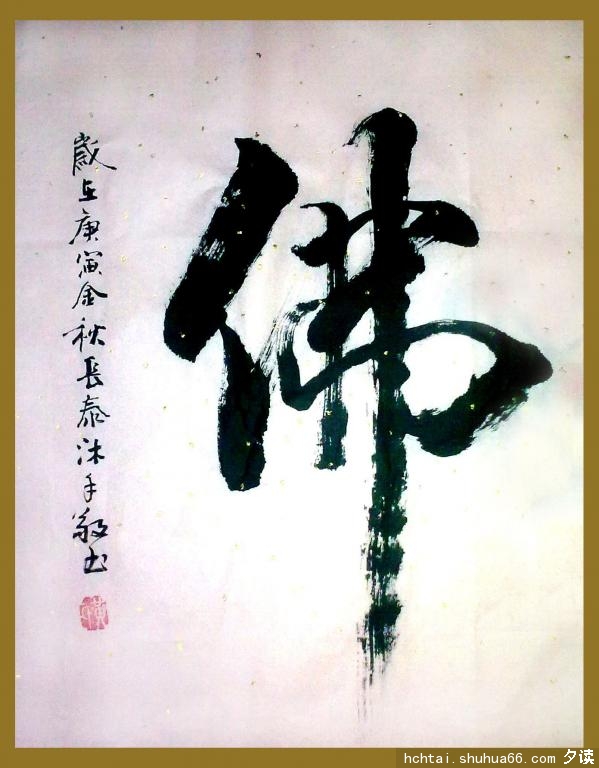 佛
歲在庚寅金秋長泰沐手敬书
hchtai.shuhua66.com 夕读